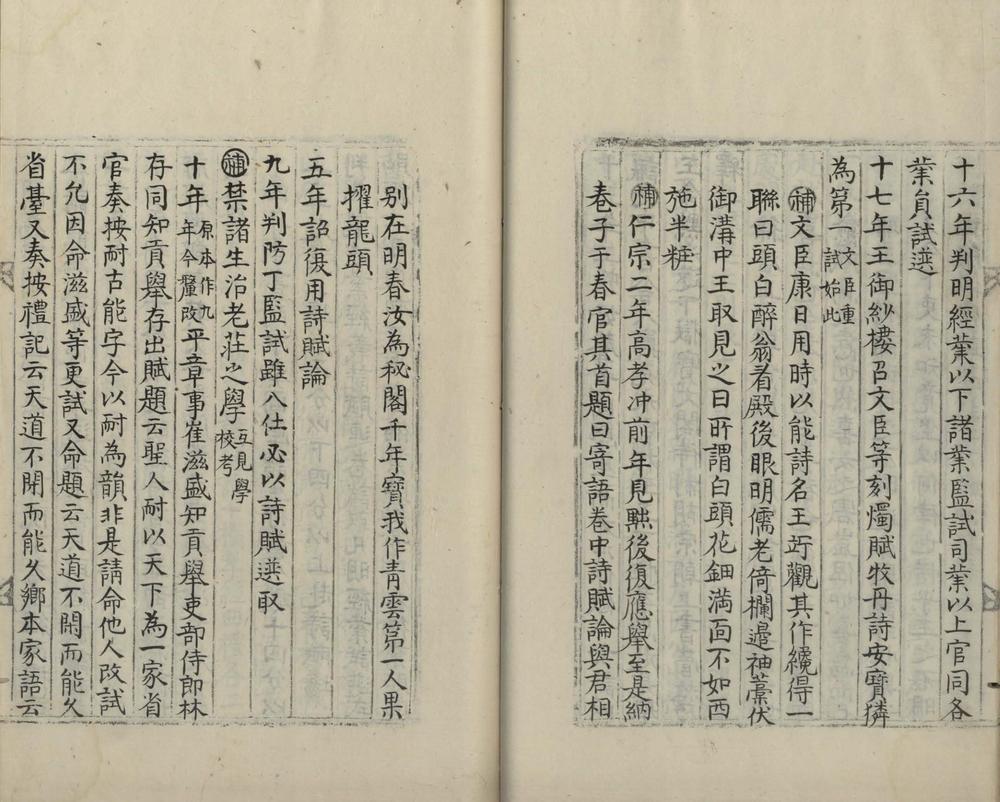 十六年判明經業以下諸業監試司業以上官同各
業員試選
十七年王御紗樓召文臣等刻燭賦牧丹詩安寶獜
為第一文臣重試始此
補文臣康日用時以能詩名王竚觀其作纔得一
聯曰頭白醉翁看殿後眼明儒老倚欄邊袖藁伏
御溝中王取見之曰所謂白頭花鈿满面不如西
施半粧
補仁宗二年高孝冲前年見黜後復應舉至是納
卷子于春官其首題曰寄語卷中詩賦論與君相
别在明春汝為秘閣千年寶我作青雲第一人果
擢龍頭
五年詔復用詩賦論
九年判防丁監試雖入仕必以詩賦選取
補禁諸生治老莊之學互見學校考
十年原本作九年今釐改平章事崔滋盛知貢舉吏部侍郎林
存同知貢舉存出賦題云聖人耐以天下為一家省
官奏按耐古能字今以耐為韻非是請命他人改試
不允因命滋盛等更試又命題云天道不閑而能久
省臺又奏按禮記云天道不閉而能久鄉本家語云